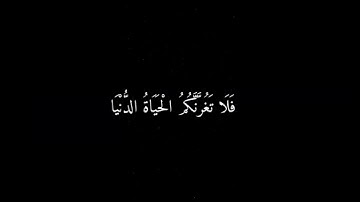 فَلَا تَغُرَّنَّكُمُ الْحَيَاةُ الدُّنْيَا